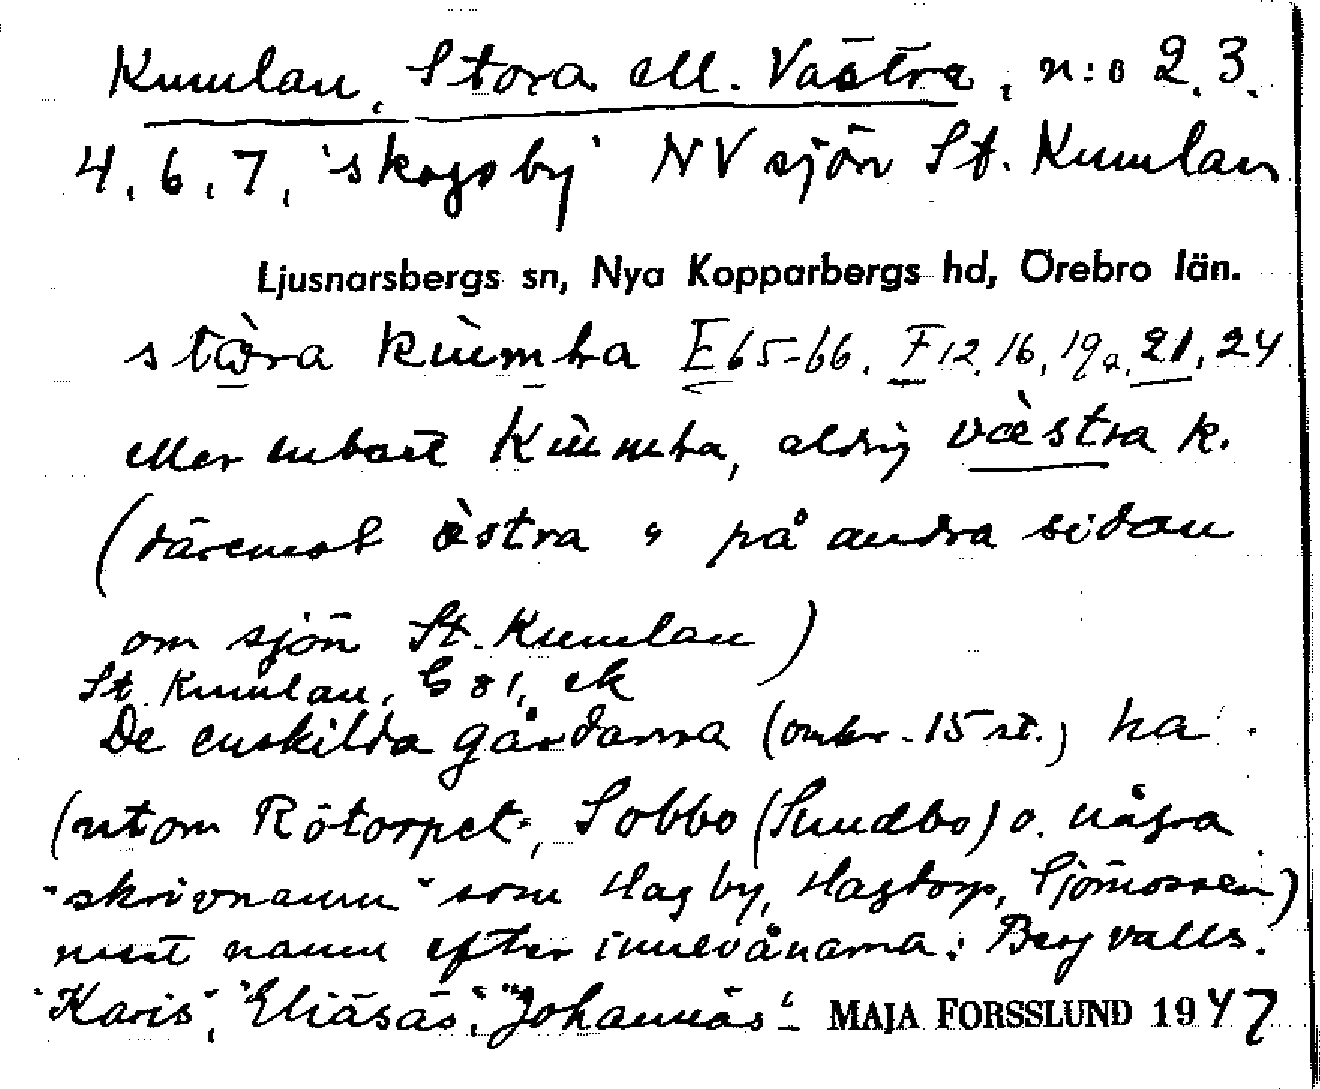 Kumlan, Stora ell. Västra, n:o 2, 3,
4, 6, 7, 'skogsby' NV sjön St. Kumlan
Ljusnarsbergs sn, Nya Kopparbergs hd, Örebro län.
stɷ̀ra kùmla E 65-66. F 12, 16, 19a, 21, 24
eller enbart kùmla, aldrig vè̀stra k.
(däremot östra " på andra sidan
om sjön St. Kumlan)
St. Kumlan, G 81, ek
De enskilda gårdarna (omkr. 15 st.) ha
(utom Rötorpet, Sobbo (Sundbo) o. några
"skrivnamn" som Hagby, Hagtorp, Sjömossen)
mest namn efter innevånarna: Bergvalls.
"Karis", "Eliäsäs", "Johannäs" MAJA FORSSLUND 1947